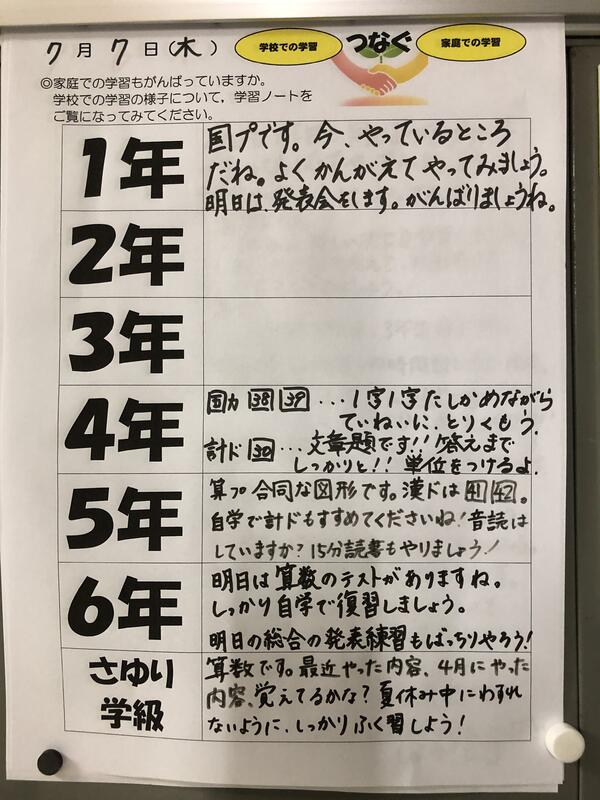 7月7日(木)
学校での学習
つなぐ
家庭での学習
◎家庭での学習もがんばっていますか。
学校での学習の様子について，学習ノートを
ご覧になってみてください。
1年
国プです。今、やっているところ
だね。よくかんがえてやってみましょう。
明日は、発表会をします。がんばりましょうね。
2年
3年
4年
国カ 38 39 ...1字1字たしかめながら
ていねいに、とりくもう。
計ド 30 ...文章題です!!答えまで
しっかりと!!単位をつけるよ.
5年
算プ 合同な図形です。漢ドは 41 42。
自学で計ドもすすめてくださいね!音読は
していますか?15分読書もやりましょう!
6年
明日は算数のテストがありますね。
しっかり自学で復習しましょう。
明日の総合の発表練習もばっちりやろう!
さゆり
学級
算数です。最近やった内容、4月にやった
内容、覚えてるかな?夏休み中にわすれ
ないように、しっかりふく習しよう!